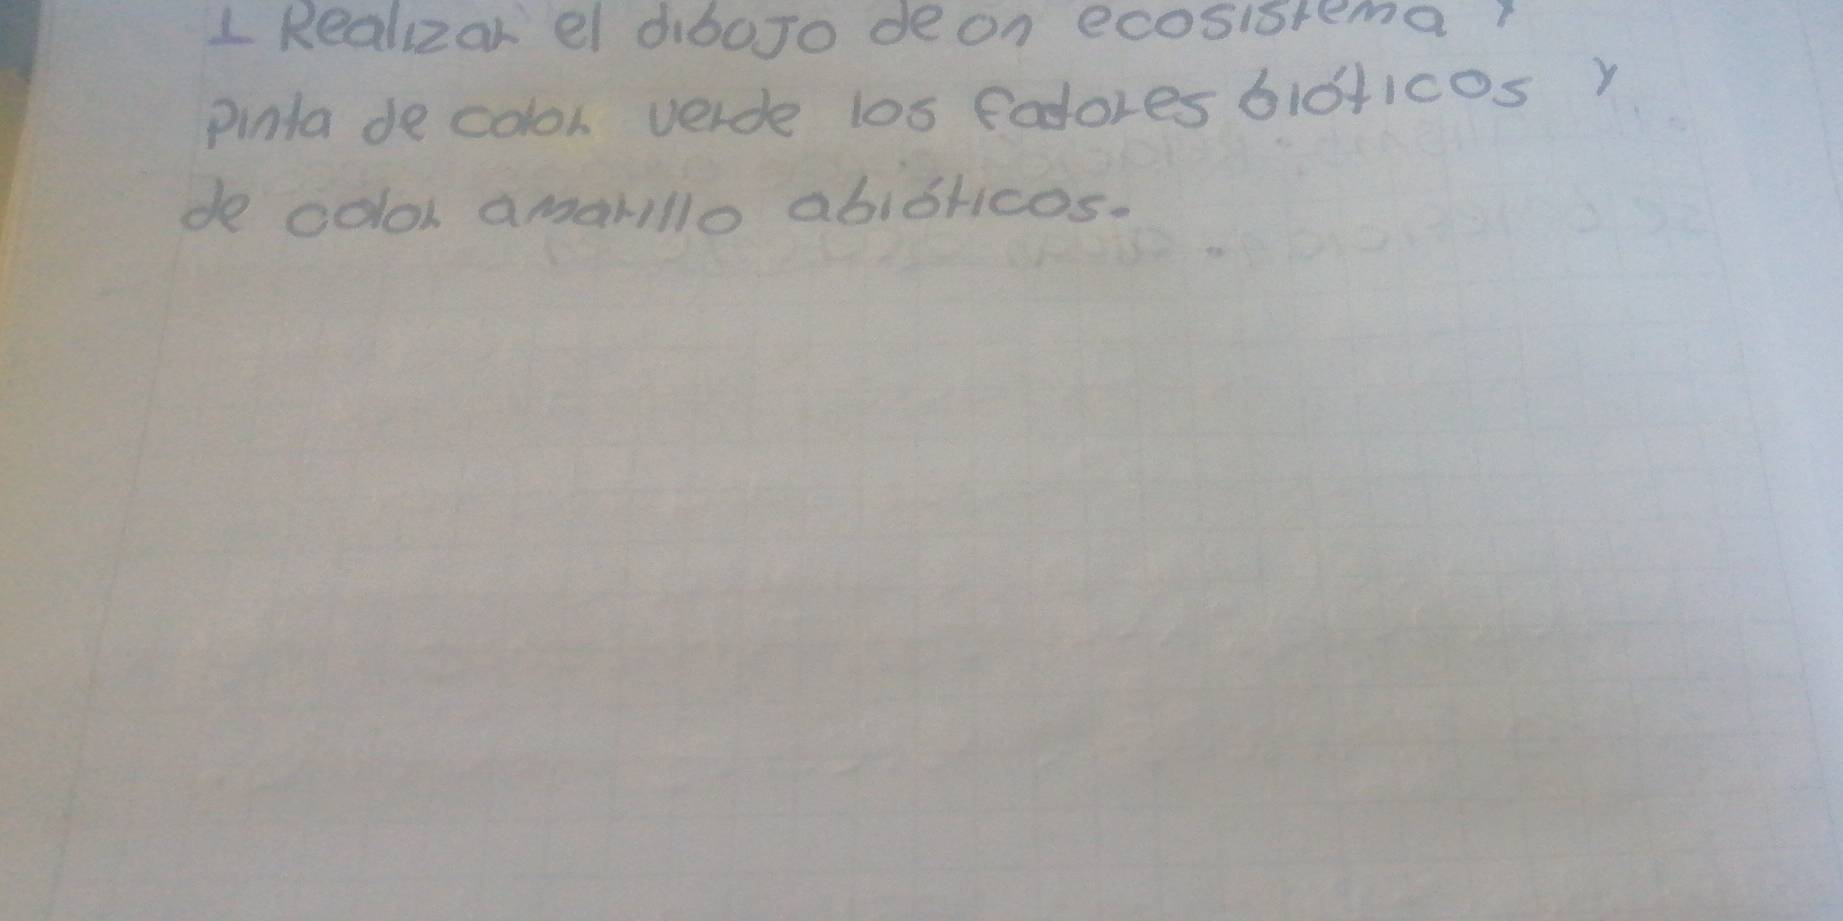 1 Realizar el dibojo de on ecosistema y
pinta de color verde los factores bióticos y
de color amarillo abióticos.